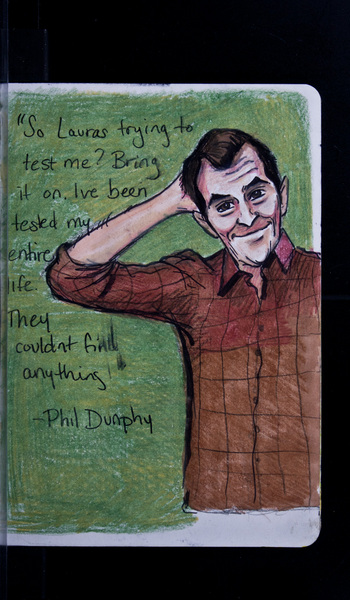 "So Lauras trying to
test me? Bring
it on. Ive been
tested my
entire
life.
They
couldnt find
anything
-Phil Dunphy